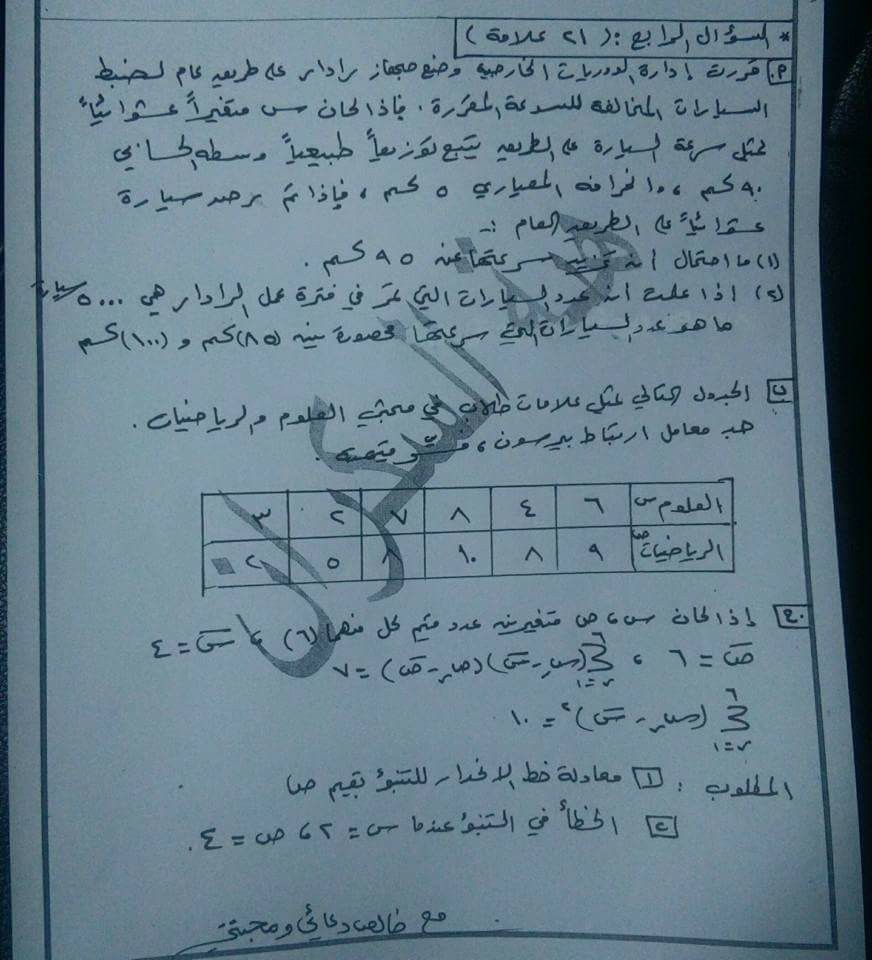 * السؤال الرابع : ( ٢١ علامة )
أ. قررت إدارة الدوريات الخارجية وضع جهاز رادار على طريق عام لضبط
السيارات المخالفة للسرعة المقررة . فإذا كان س متغيراً عشوائياً
يمثل سرعة السيارة على الطريق يتبع توزيعاً طبيعياً وسطه الحسابي
٩٠ كم ، وانحرافه المعياري ٥ كم ، فإذا تم رصد سيارة
عشوائياً على الطريق العام :-
(١) ما احتمال أن تزيد سرعتها عن ٩٥ كم .
(٢) إذا علمت أن عدد السيارات التي تمر في فترة عمل الرادار هي ٥٠٠٠ سيارة
ما هو عدد السيارات التي سرعتها محصورة بين (٨٥) كم و (١٠٠) كم
ب الجدول التالي يمثل علامات طلاب في مبحثي العلوم والرياضيات .
جد معامل ارتباط بيرسون ،
العلوم س ٦ ٤ ٨ ٧ ٢ ٣
الرياضيات ص ٩ ٨ ١٠ ٨ ٥ ٢
ج. إذا كان س ، ص متغيرين عدد قيم كل منهما (٦) ، س̄ = ٤
ص̄ = ٦ ، ∑ (سر - س̄) (صر - ص̄) = ٧
∑ (سر - س̄)٢ = ١٠
المطلوب : ١ معادلة خط الانحدار للتنبؤ بقيم ص
٢ الخطأ في التنبؤ عندما س = ٢ ، ص = ٤ .
مع خالص دعائي ومحبتي
هبة السكران